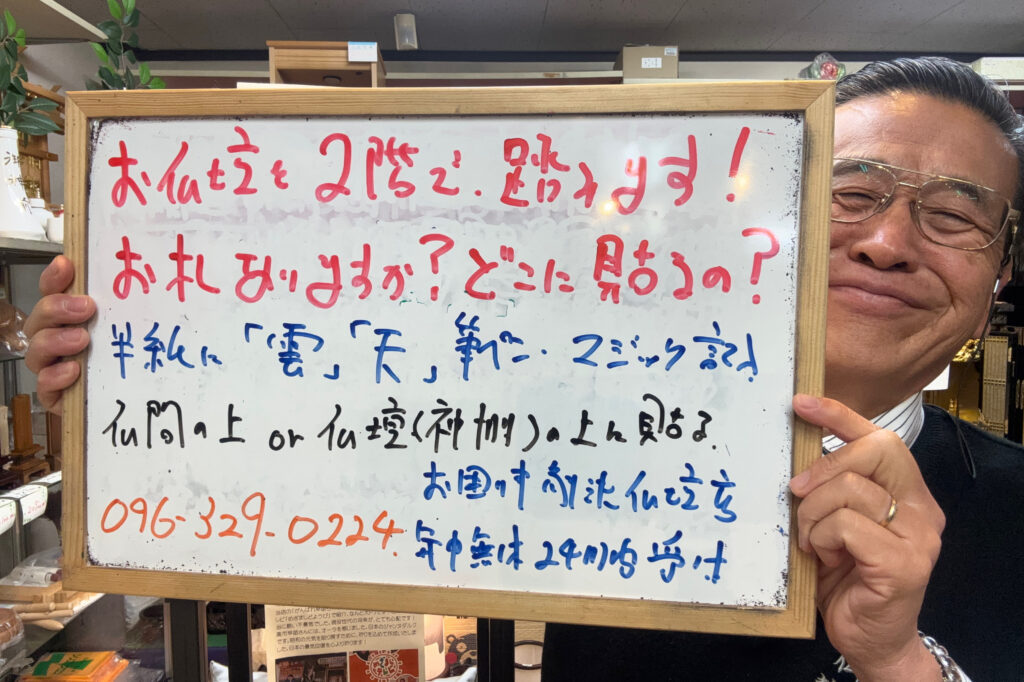 お仏壇を2階で、踏みます!
お札ありますか?どこに貼るの?
半紙に「雲」「天」筆ペン・マジック記入
仏間の上 or 仏壇(神棚)の上に貼る。
お国の
仏壇店
096-329-0224.
年中無休 24時間受付